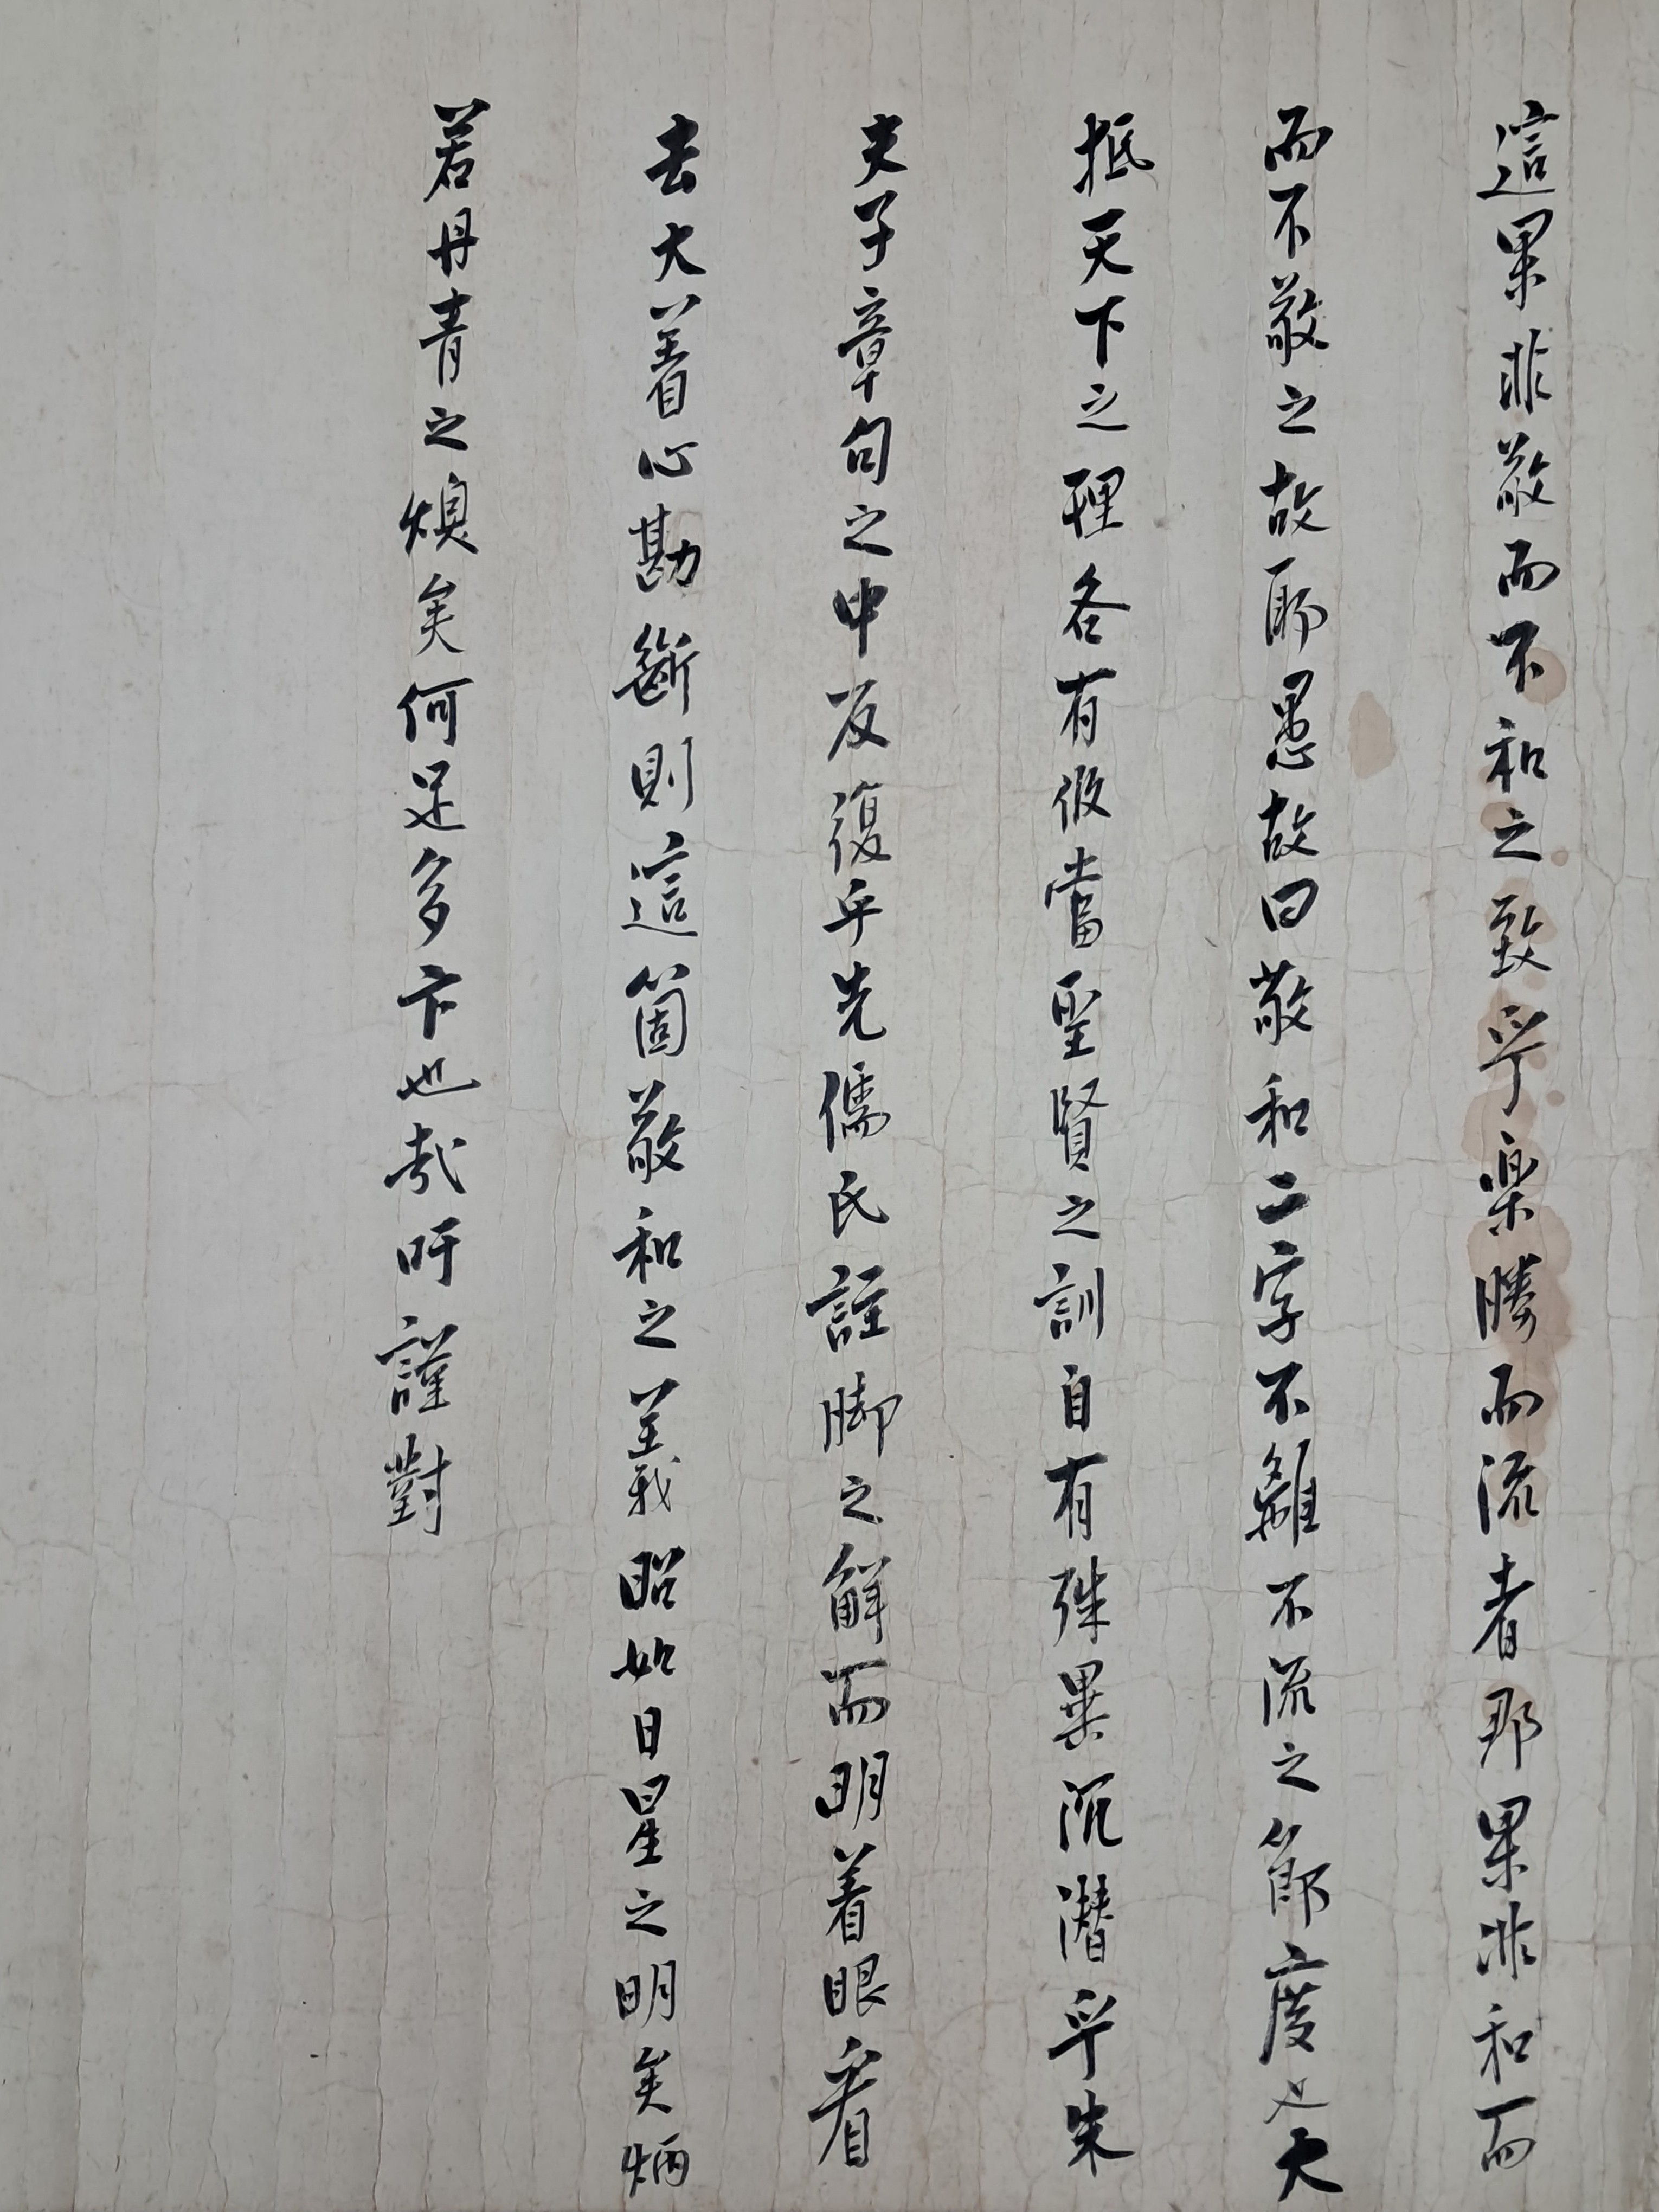 這果非敬而不和之致乎樂勝而流者耶果非和而
而不敬之故耶愚故曰敬和二字不離不流之節度也大
抵天下之理各有攸當聖賢之訓自有殊異沉潛乎朱
夫子章句之中反復乎先儒氏註脚之解而明着眼看
去大着心勘斷則這箇敬和之義昭如日星之明矣炳
若丹青之煥矣何足多卞也哉吁謹對